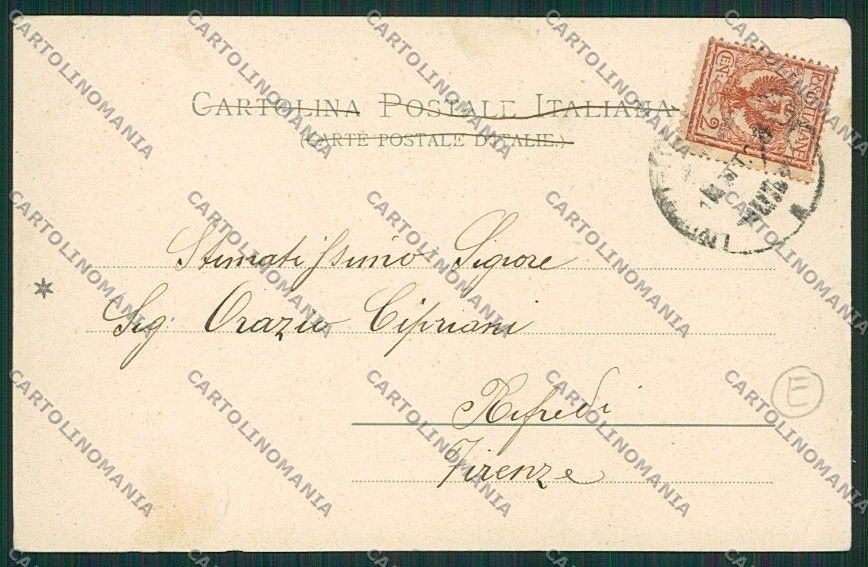 CARTOLINA POSTALE ITALIANA
(CARTE POSTALE D'ITALIE.)
POSTE ITALIANE
CENT. 2
Stimatissimo Sigore
Sig. Orazio Cipriani
Rifredi
Firenze
E
CARTOLINOMANIA